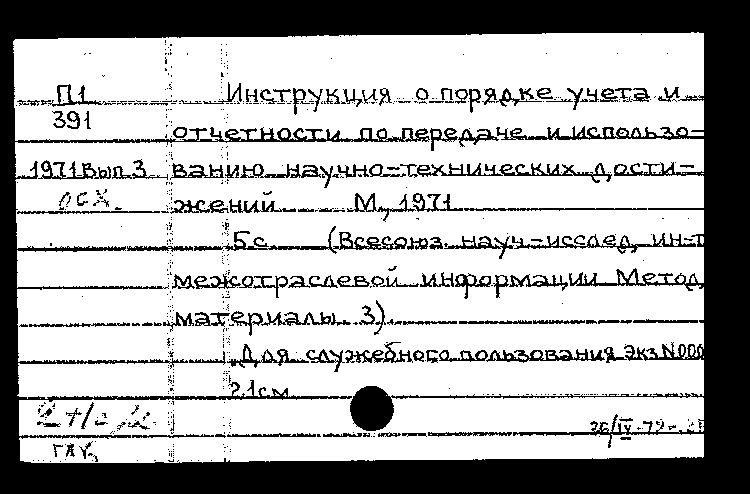 П1
391
1971 Вып 3
осх.
Инструкция о порядке учета и
отчетности по передаче и использо-
ванию научно-технических дости-
жений М., 1971
5 с. (Всесоюз. науч-исслед, ин-т
межотраслевой информации Метод,
материалы. 3).
Для служебного пользования Экз N000
21 см
26/IV-79-